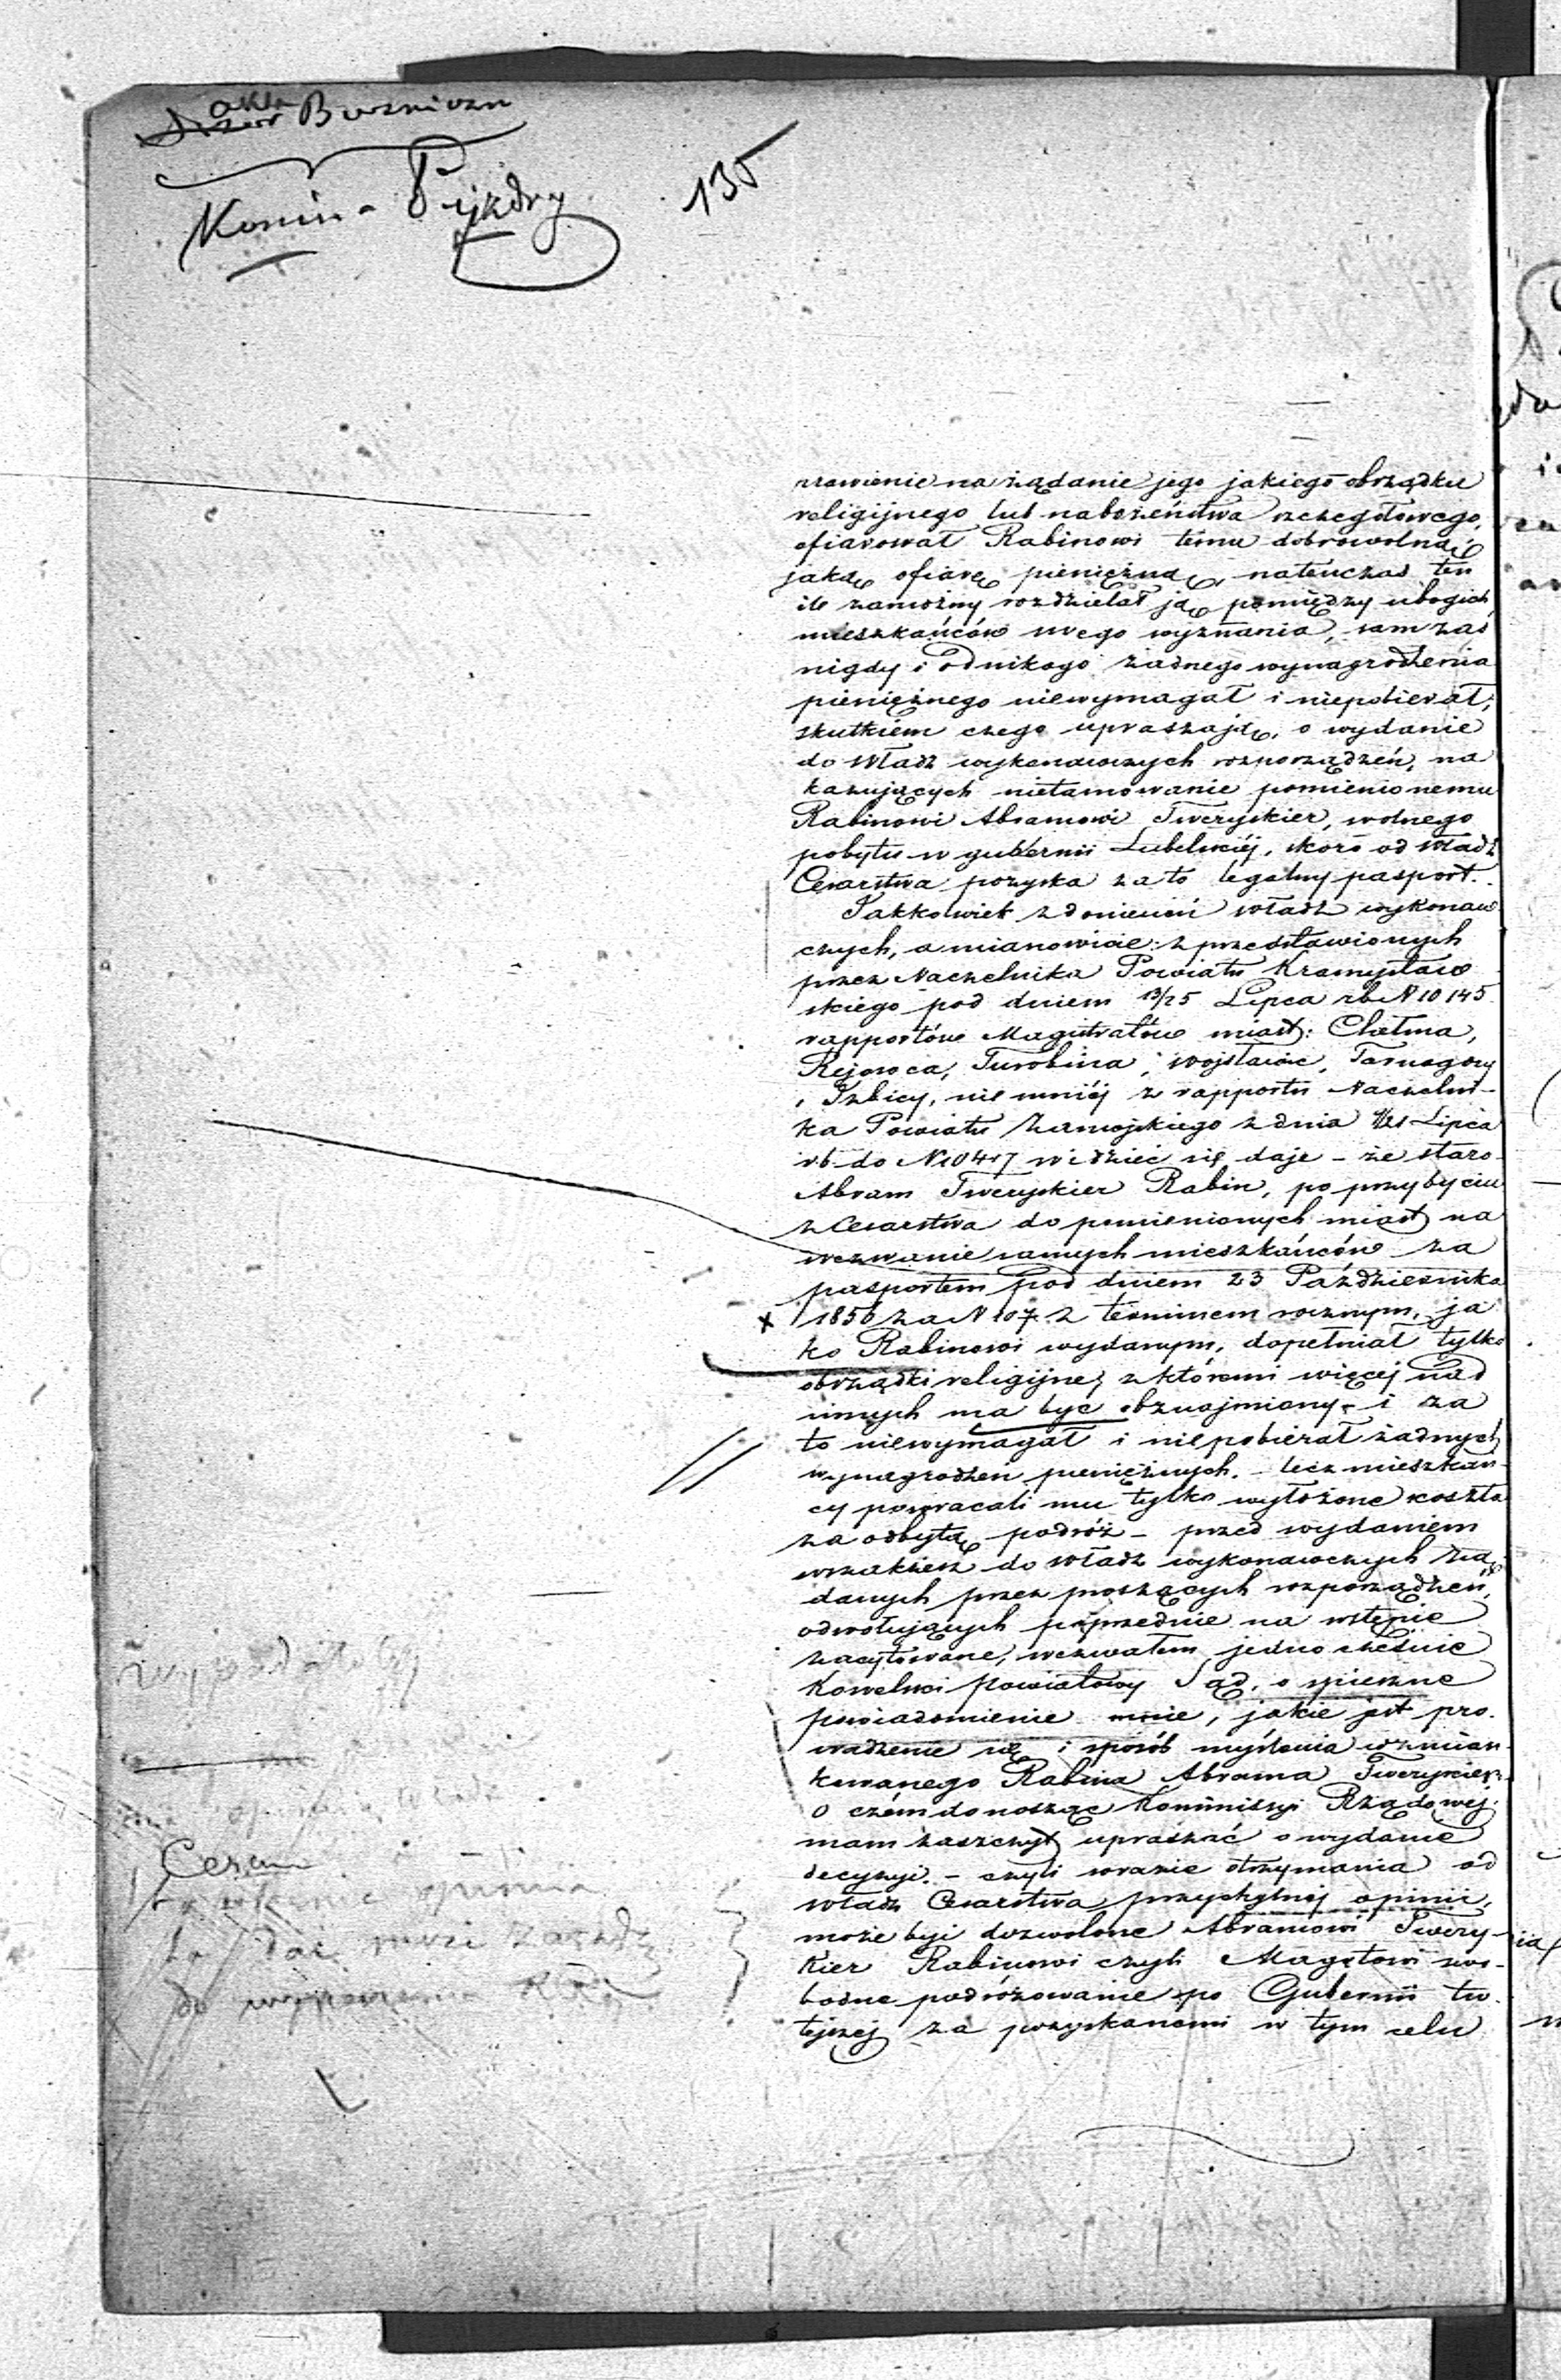 akta Bużniczn
Konin - Pyzdry
135
rawienie na żądanie jego jakiego obrządku
religijnego lub nabożeństwa szczegółowego,
ofiarował Rabinowi temu dobrowolną
jaką ofiarę pieniężną, natenczas ten
ile zamożny rozdzielał ją pomiędzy ubogich
mieszkańców swego wyznania, sam zaś
nigdy i od nikogo żadnego wynagrodzenia
pieniężnego niewymagał i niepobierał;
skutkiem czego upraszają, o wydanie
do Władz wykonawczych rozporządzeń, na
kazujących nietamowanie pomienionemu
Rabinowi Abramowi Twerskier, wolnego
pobytu w gubernii Lubelskiéj, skoro od Władz
Cesarstwa pozyska na to legalny pasport.
Jakkolwiek z doniesień władz wykonaw
czych, a mianowicie: z przedstawionych
przez Naczelnika Powiatu Krasnystaw
skiego pod dniem 13/25 Lipca rb N 10145
rapportów Magistratów miast: Chełma,
Rejowca, Turobina, Wojsławic, Tarnogory
i Izbicy, nie mniéj z rapportu Naczelni-
ka Powiatu Zamojskiego z dnia Lipca
rb do N widzieć się daje - że staro-
Abram Twerskier Rabin, po przybyciu
z Cesarstwa do pomienionych miast na
wezwanie samych mieszkańców za
pasportem pod dniem 23 Października
x 1856 za N 107 z terminem rocznym, ja
ko Rabinowi wydanym, dopełniał tylko
obrządki religijne, z któremi więcej nad
innych ma być obznajmiony - i za
to niewymagał i niepobierał żadnych
wynagrodzeń pieniężnych. - lecz mieszkań-
cy powracali mu tylko wyłożone koszta
za odbytą podróż - przed wydaniem
wszakżesz do władz wykonawczych żą
danych przez proszących rozporządzeń,
odwołujących poprzednie na wstępie
zacytowane, wezwałem jednocześnie
Kowelski powiatowy Sąd, o spieszne
powiadomienie mnie, jakie jest pro-
wadzenie się i sposób myślenia wzmian-
kowanego Rabina Abrama Twerskier.
O czém donosząc Kommissyi Rządowéj
mam zaszczyt upraszać o wydanie
decyzyi. - czyli w razie otrzymania od
władz Cesarstwa przychylnéj opinii,
może być dozwolone Abramowi Twery-
kier Rabinowi czyli Magetowi swo-
bodne podróżowanie po Gubernii tu-
tejszej za pozyskanemi w tym celu
opinią Władz
Cesar
opinia